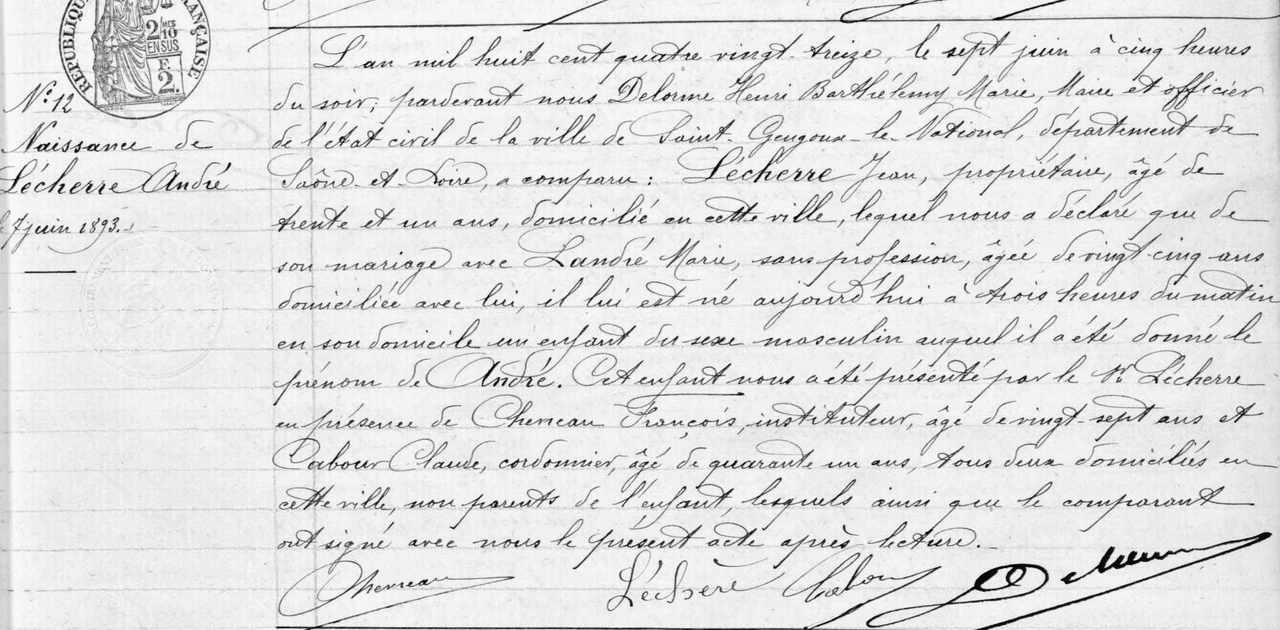 RÉPUBLIQUE FRANÇAISE
2 10
EN SUS
F
2
N.° 12
Naissance de
Lécherre André
le 7 juin 1893.
L'an mil huit cent quatre vingt-treize, le sept juin à cinq heures
du soir, pardevant nous Delorme Henri Barthélemy Marie, Maire et officier
de l'état civil de la ville de Saint-Gengoux-le-National, département de
Saône-et-Loire, a comparu : Lécherre Jean, propriétaire, âgé de
trente et un ans, domicilié en cette ville, lequel nous a déclaré que de
son mariage avec Landré Marie, sans profession, âgée de vingt-cinq ans
domiciliée avec lui, il lui est né aujourd'hui à trois heures du matin
en son domicile un enfant du sexe masculin auquel il a été donné le
prénom de André. Cet enfant nous a été présenté par le Sr Lécherre
en présence de Chevreau François, instituteur, âgé de vingt-sept ans et
Cabour Claude, cordonnier, âgé de quarante un ans, tous deux domiciliés en
cette ville, non parents de l'enfant, lesquels ainsi que le comparant
ont signé avec nous le présent acte après lecture.
Chevreau Léchère Delorme